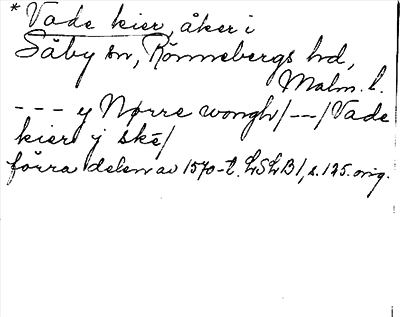 * Vade kier, åker i
Säby sn, Rönnebergs hd,
Malm. l.
- - - y Nørre wongh/---/Vade
kier j ske/
förra delen av 1570-t. LSLB I, s. 125. orig.